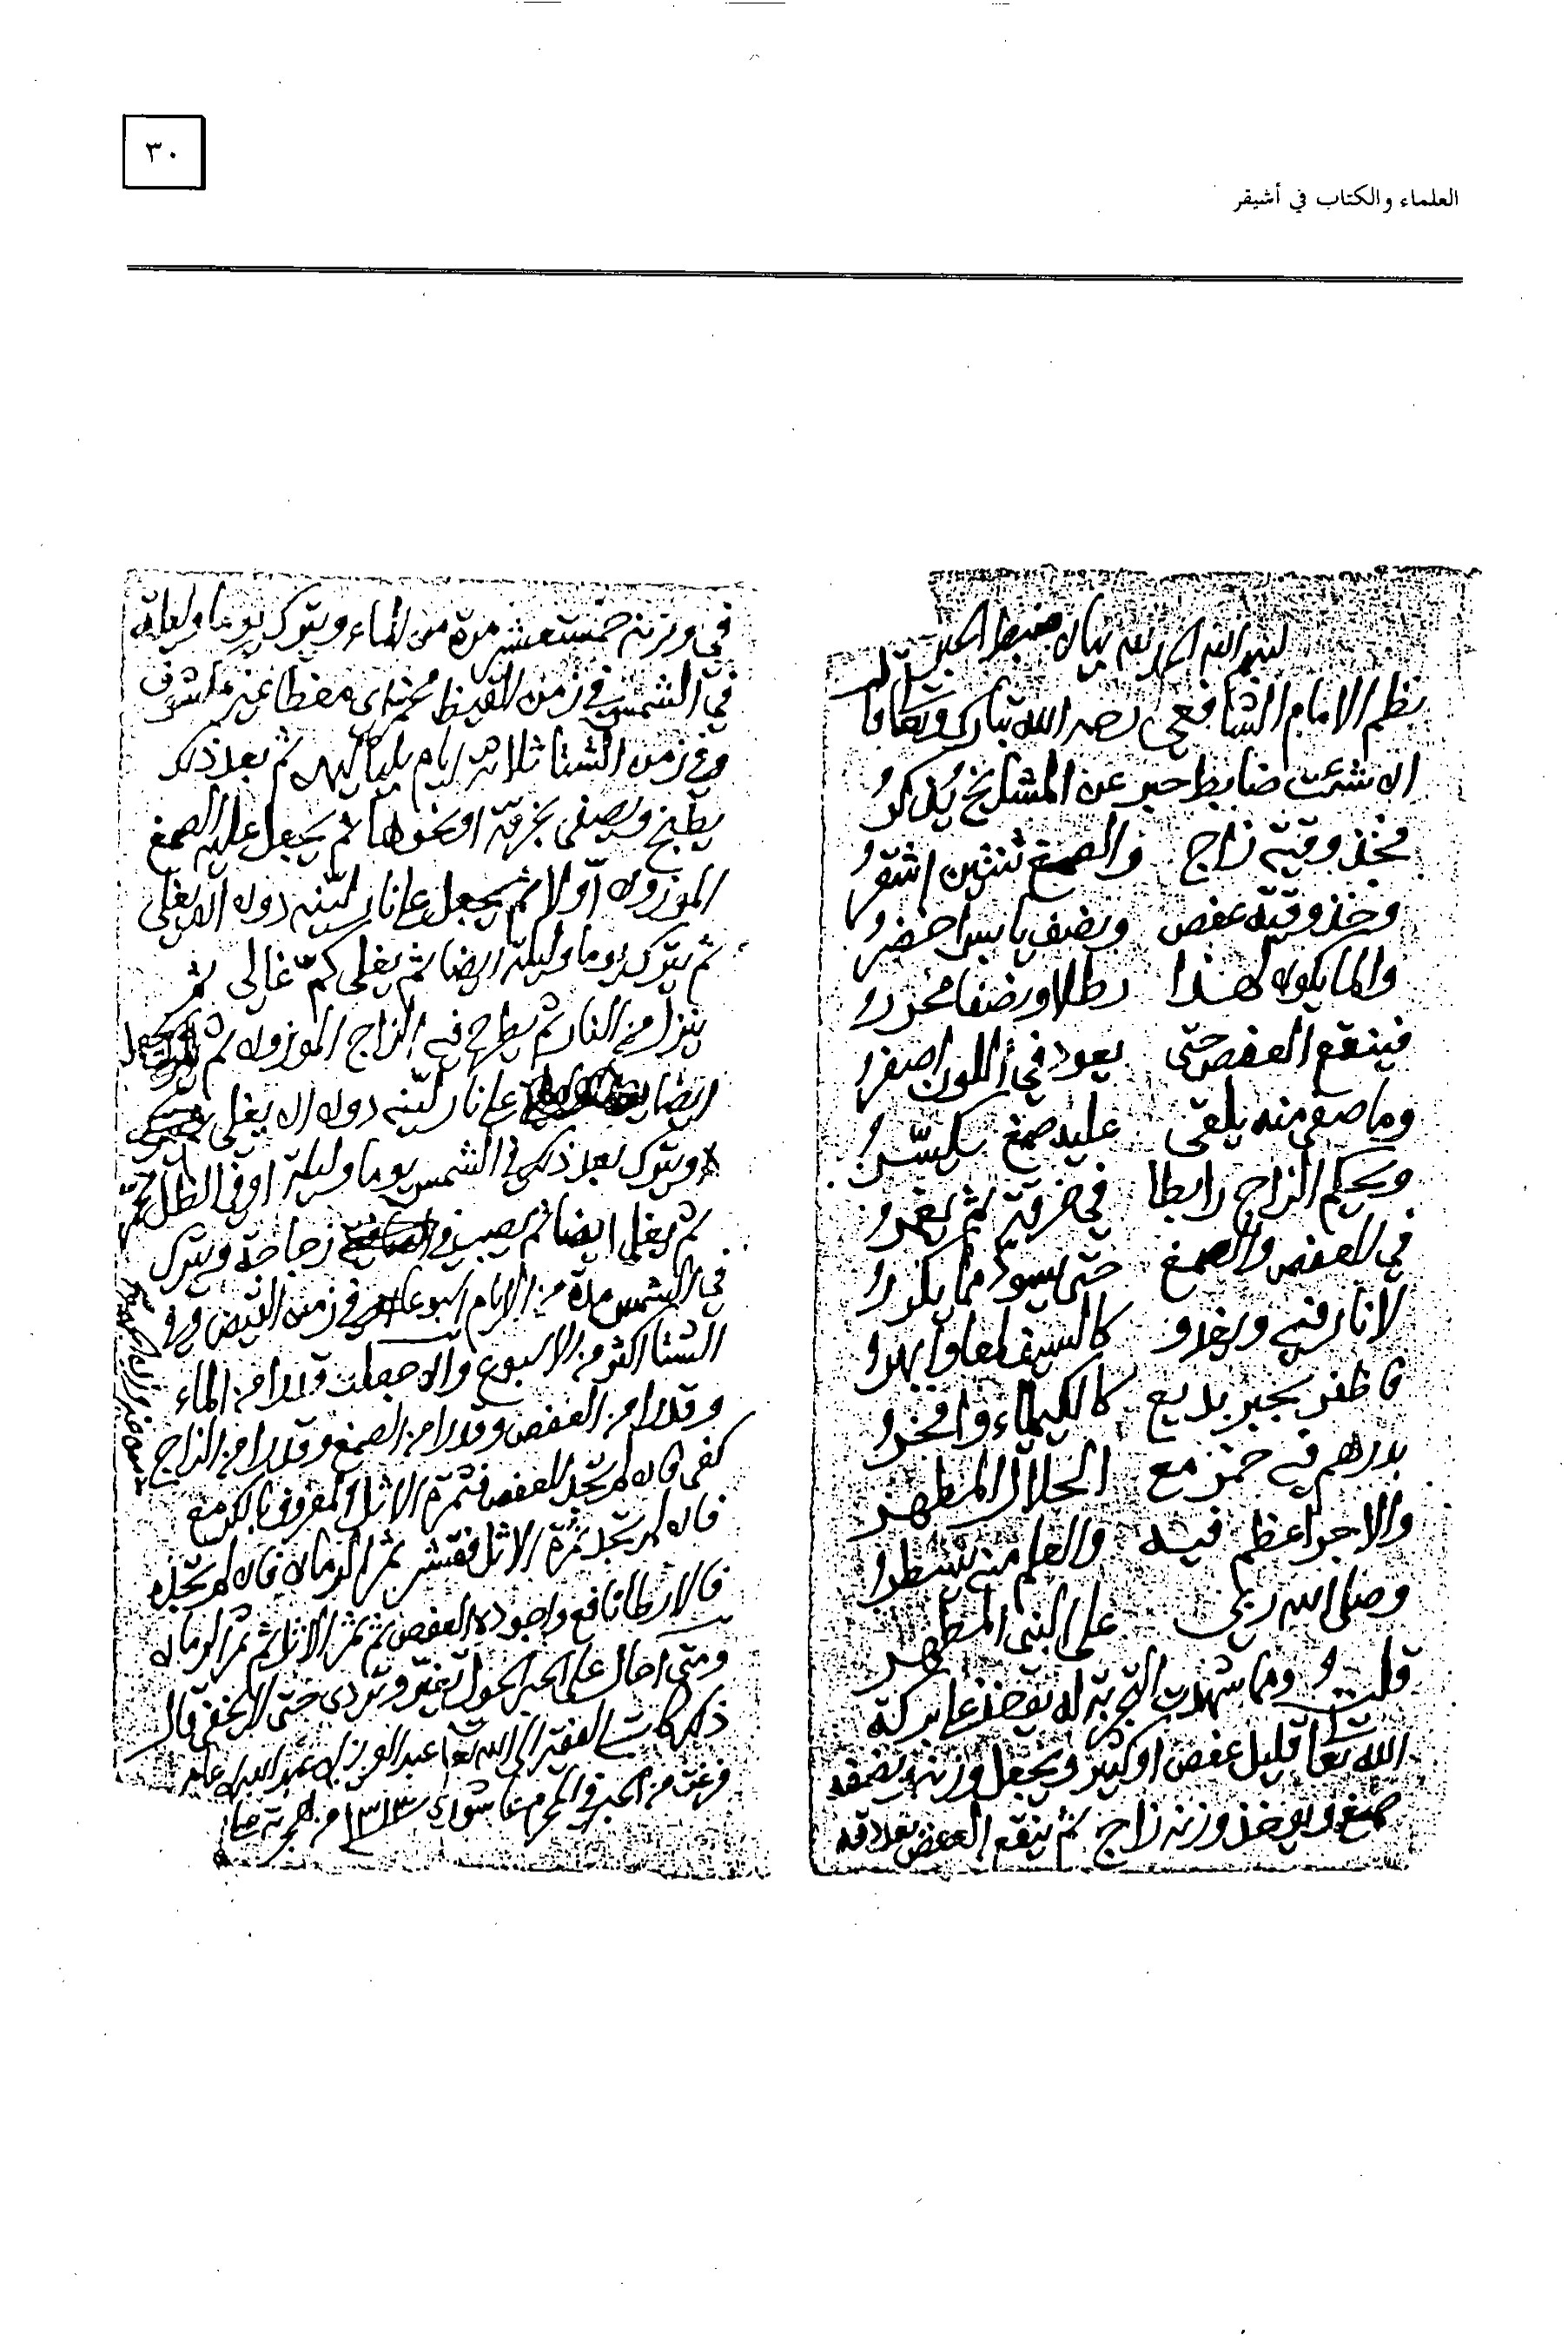 ٣٠
العلماء والكتاب في أشيقر
بسم الله الحمد لله بيان ضبط الحبر
نظم الامام الشافعي رحمه الله تبارك وتعالى
ان شئت ضابط حبر عن المشايخ يذكر
فخذ وقية زاج والصمغ ثنتين اشقر
وخذ وقية عفص ونصف يابس اخضر
والما يكون لهذا رطلا ونصفا محرر
فينقع العفص حتى يعود في اللون اصفر
وما صفي منه يلقى عليه صمغ يكسّر
ويحكم الزاج رابطا في خرقة ثم يغمر
في العفص والصمغ حتى يسود مما يكرر
لا نار فيه ويغدو كالسيف لمعا وابهر
فاظفر بحبر بديع كالكيمياء وافخر
بدرهم فيه خمر مع الحلال المطهر
والاجر اعظم فيه والعلم منه يسطر
وصلى الله ربي على النبي المطهر
قلت ومما شهدت التجربة ان يوخذ على بركة
الله تعا قليل عفص او كثير ويجعل وزنه ونصفه
صمغ ويوخذ وزنه زاج ثم ينقع العفص بعد دقه
في وزنه خمستعشر مرة من الماء ويترك يوما وليلة
في الشمس في زمن القيظ مخمر اي مغطا غير مكشوف
وفي زمن الشتا ثلاثة ايام بلياليهن ثم بعد ذلك
يطبخ ويصفى بخرقة او نحوها ثم يجعل عليه الصمغ
الموزون اولا ثم يجعل على نار لينه دون ان يغلي
ثم يترك يوما وليلة ايضا ثم يغلى كمّ غالي ثم
ينزل من النار ثم يطرح فيه الزاج الموزون ثم يجعل
ايضا على نار لينه دون ان يغلي
ويترك بعد ذلك في الشمس يوما وليلة او في الظل
ثم يغلى ايضا ثم يصب في زجاجة ويترك
في الشمس مدة من الايام اسبوعا في زمن القيض وفي
الشتا اكثر من الاسبوع وان جعلت قدرا من الماء
وقدرا من العفص وقدرا من الصمغ وقدرا من الزاج
كفى فان لم تجد العفص فثمرة الاثل المعروف بالكرمع
فان لم تجد ثمرة الاثل فقشر ثمر الرمان فان لم تجده
فالارطا نافع واجوده العفص ثم ثمر الاثل ثم ثمر الرمان
ومتى احال على الحبر الحول تغيّر وتردى حتى لا يخفى قال
ذلك كاتبه الفقير الى الله تعا عبد العزيز بن عبد الله بن عامر
فرغت من الحبر في المحرم عاشوراء سنة ١٣١٣ من هجرته